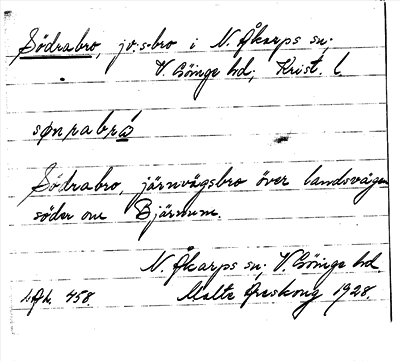 Södrabro, jv:s-bro i N. Åkarps sn;
V. Göinge hd; Krist. l.
sønrabró
Södrabro, järnvägsbro över landsvägen
söder om Bjärnum.
N. Åkarps sn; V. Göinge hd.
458. Malte Areskoug 1928.